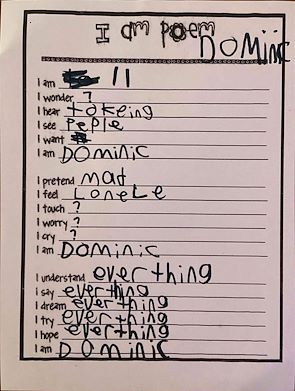 I am poem
DOMiNiC
I am 11
I wonder ?
I hear tokeing
I see PePle
I want
I am DOMiNiC
I pretend mad
I feel LoneLe
I touch ?
I worry ?
I cry ?
I am DOMiNiC
I understand ever thing
I say ever thing
I dream ever thing
I try ever thing
I hope ever thing
I am DOMiNiC